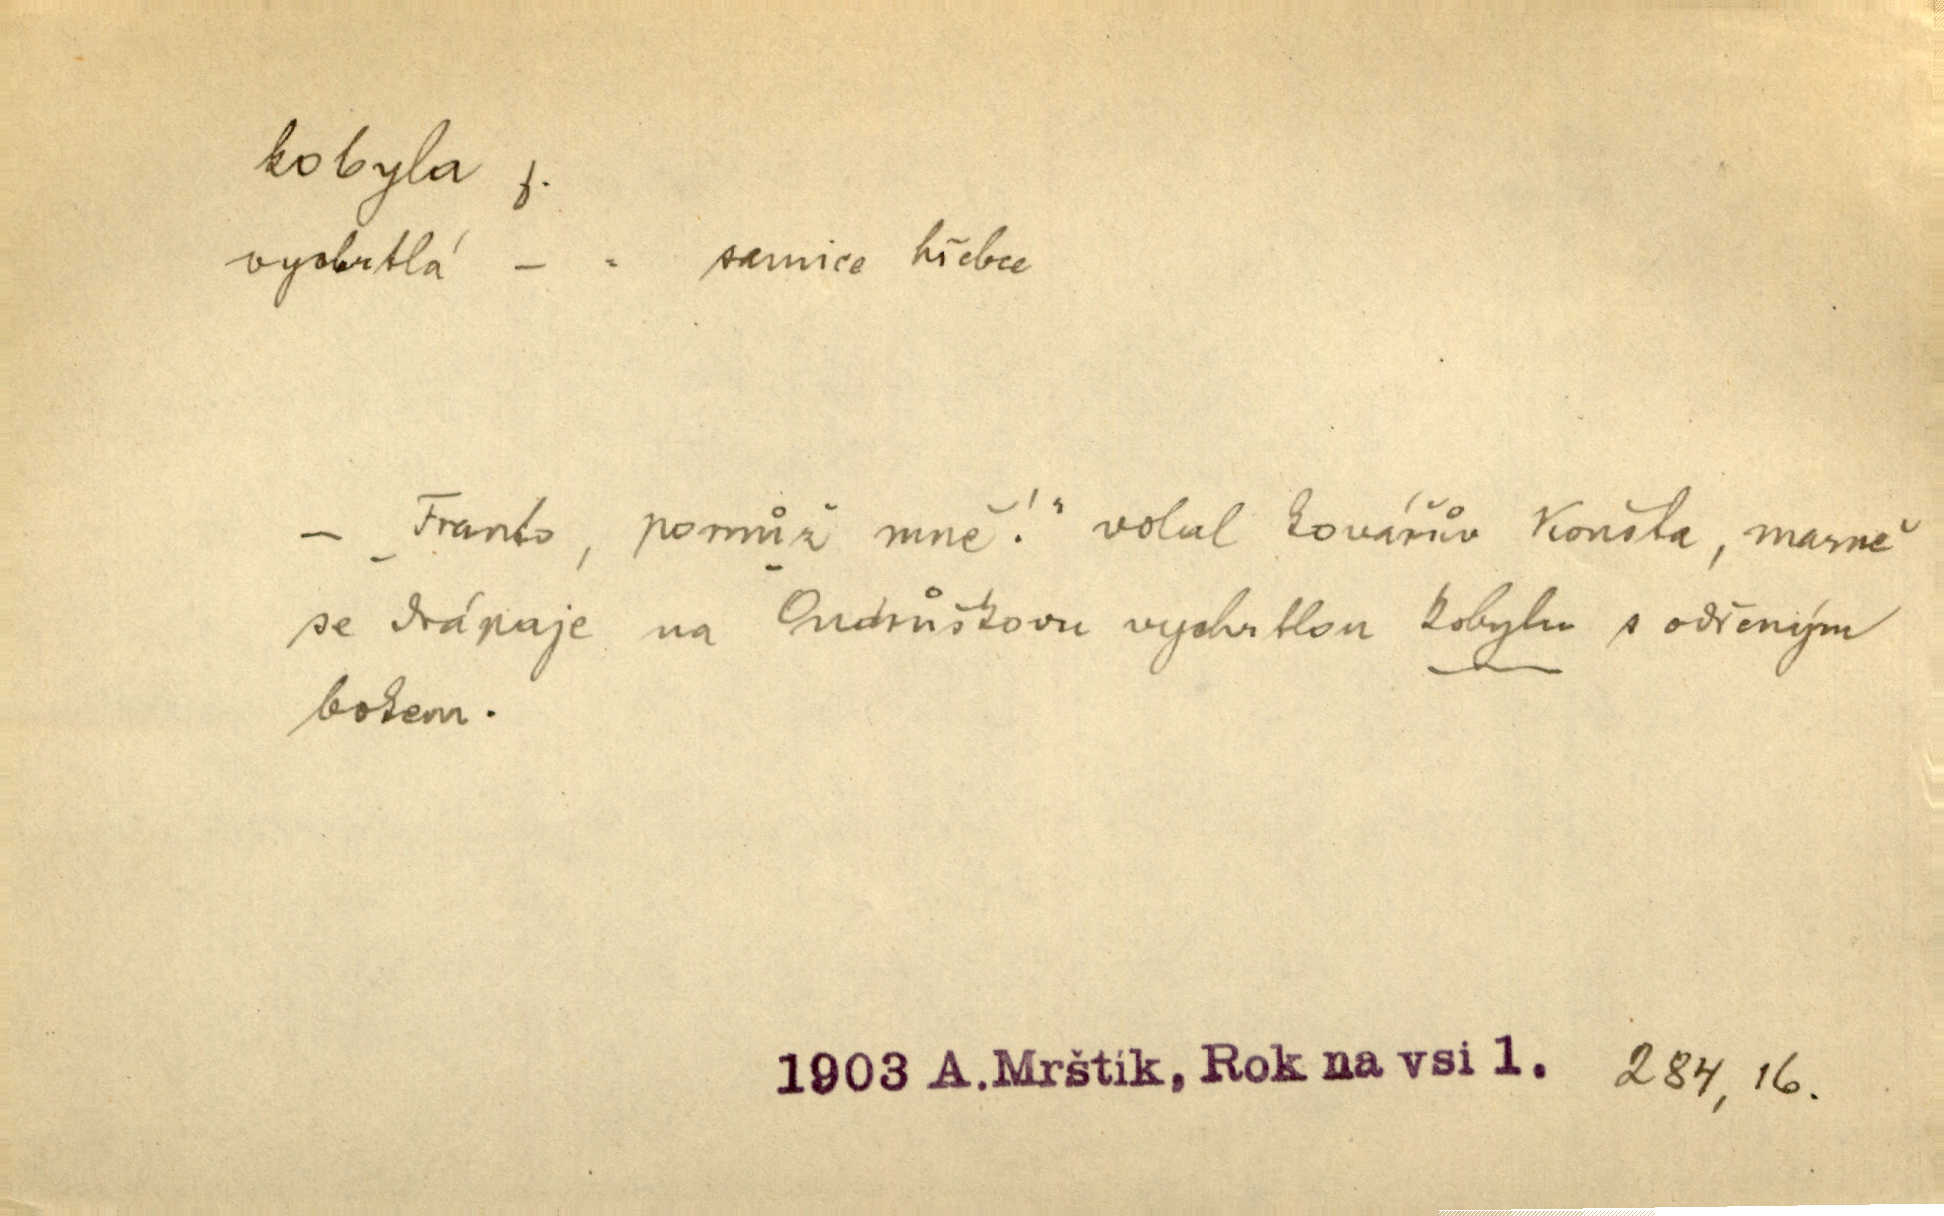 kobyla f.
vychrtlá – = samice hřebce
– „Franto, pomůž mně!“ volal kovářův Konšta, marně
se drápaje na Ondrůškovu vychrtlou kobylu s odřeným
bokem.
1903 A.Mrštík, Rok na vsi 1. 284, 16.